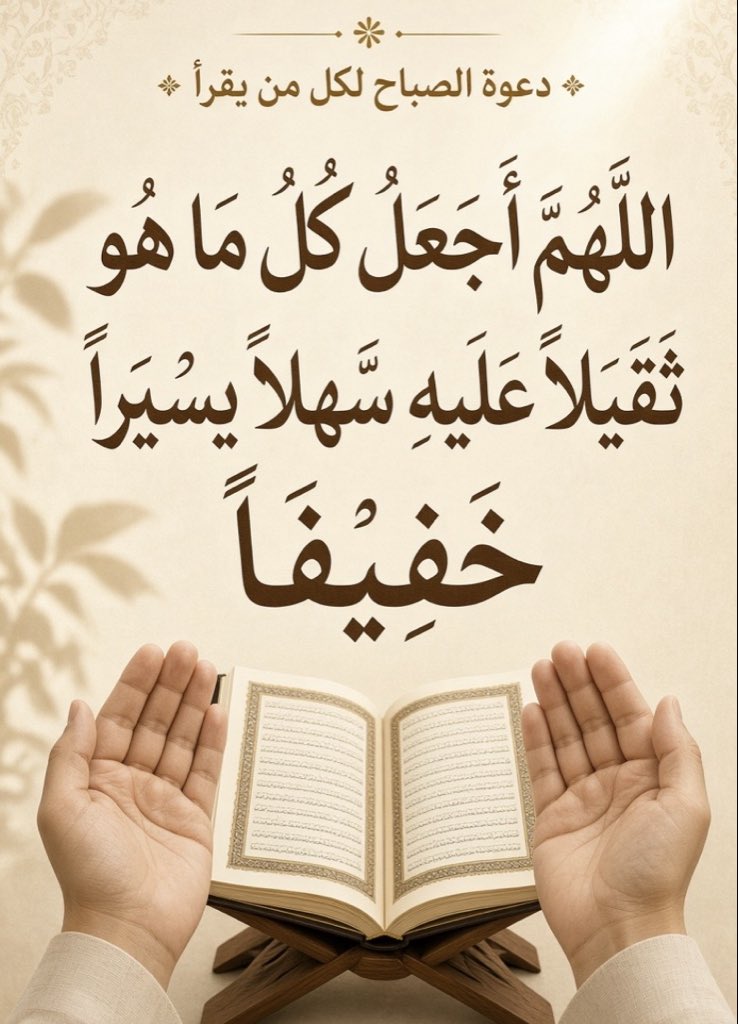 دعوة الصباح لكل من يقرأ
اللَّهُمَّ أَجَعَلُ كُلُ مَا هُو
ثَقَيَلاً عَلَيهِ سَّهلاً يسْيَراً
خَفِيْفَاً